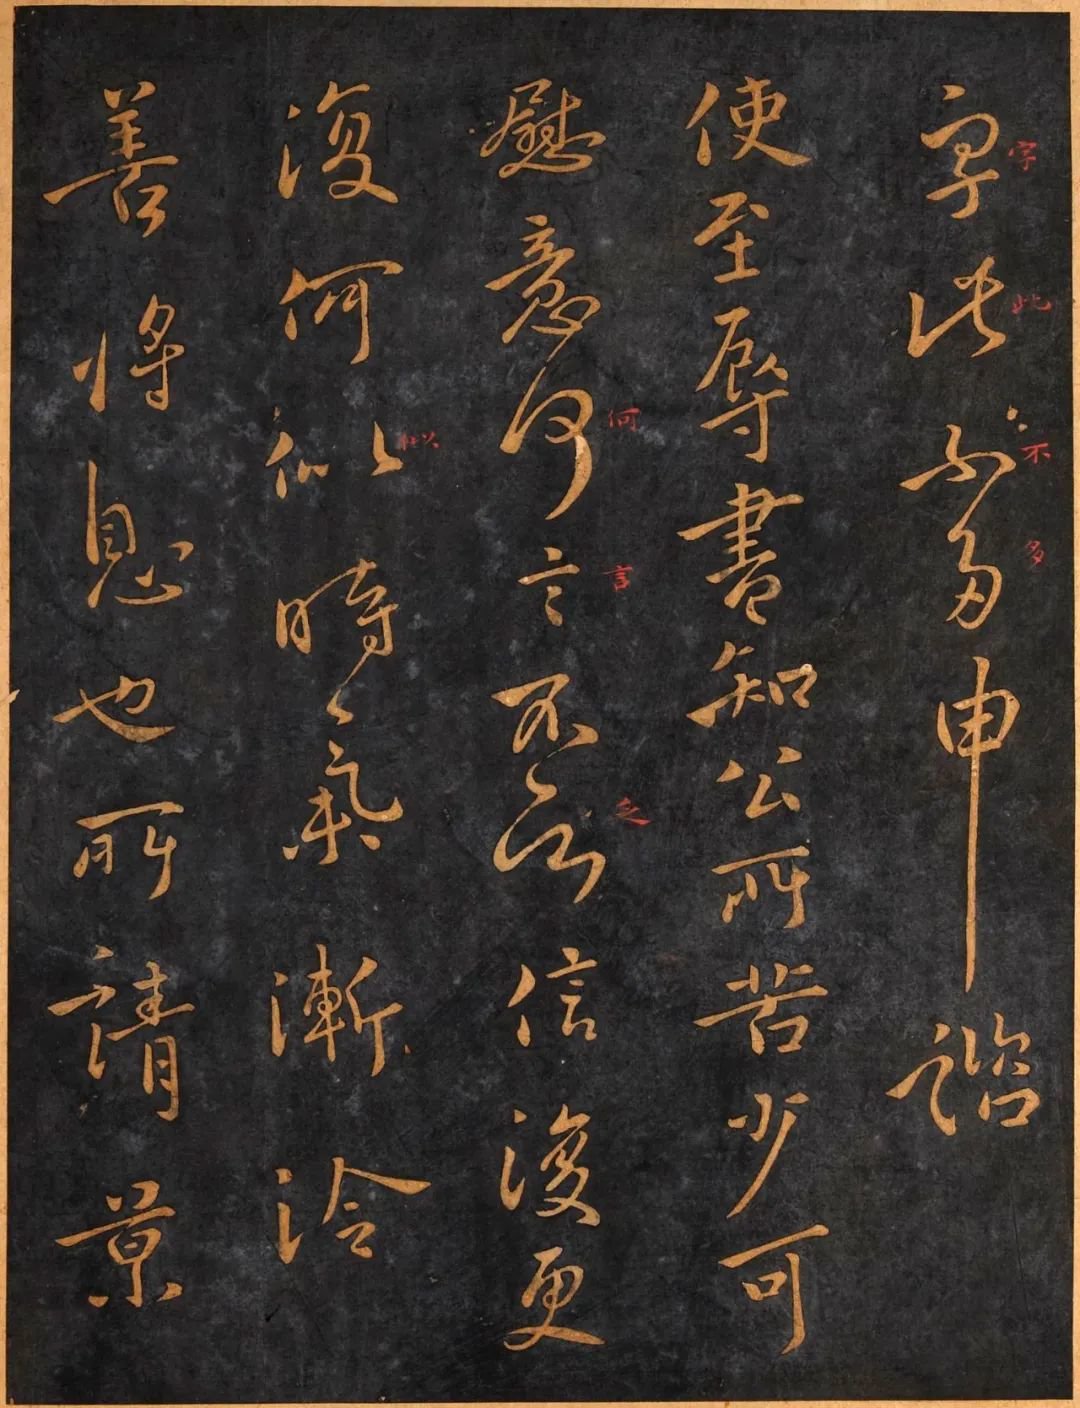 字此不多申
字此不多
使至辱書知公所苦少可
慰意何言不信後更
何言
復何似時氣漸冷
似
善將息也所請藥